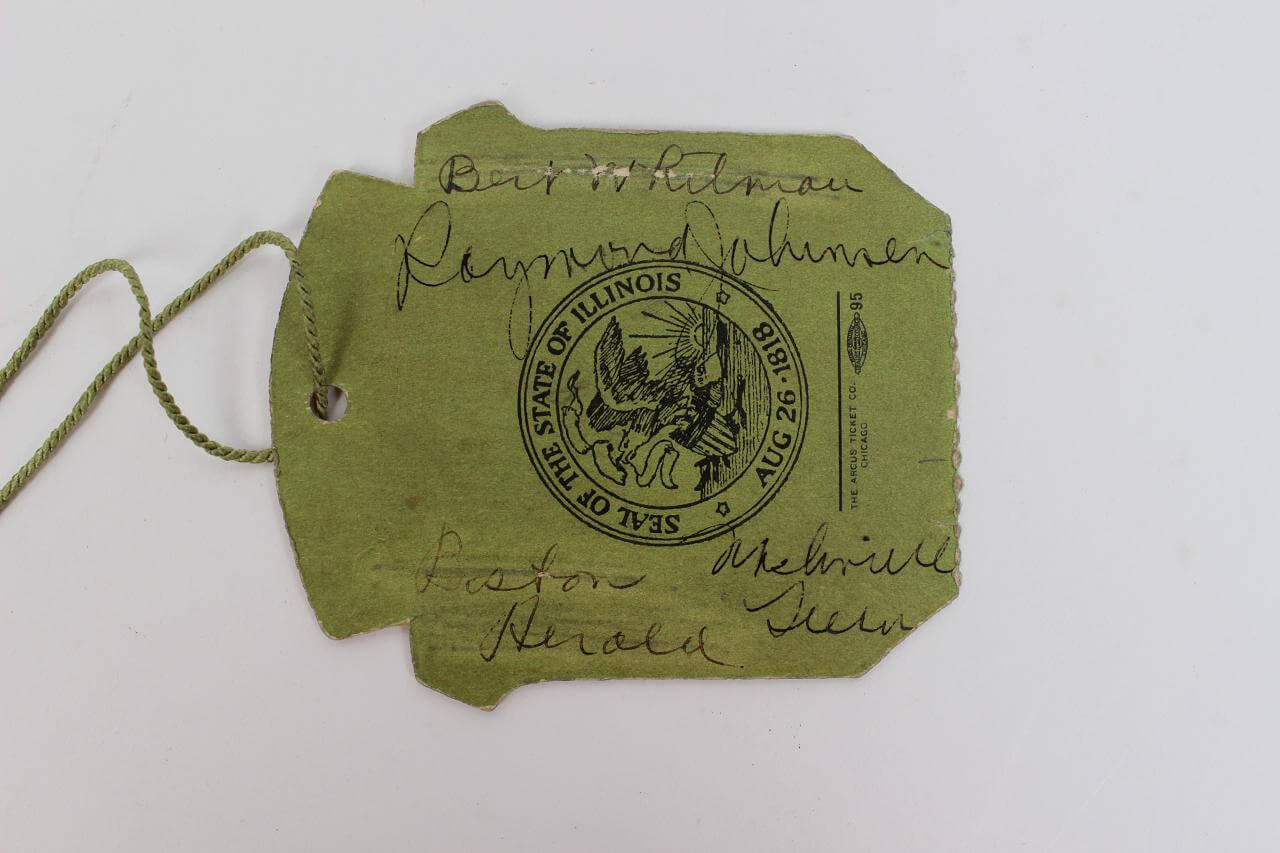 Bert Whitman
Raymond Johnsen
SEAL OF THE STATE OF ILLINOIS
AUG 26 1818
95
THE ARCUS TICKET CO.
CHICAGO
Boston
Herald